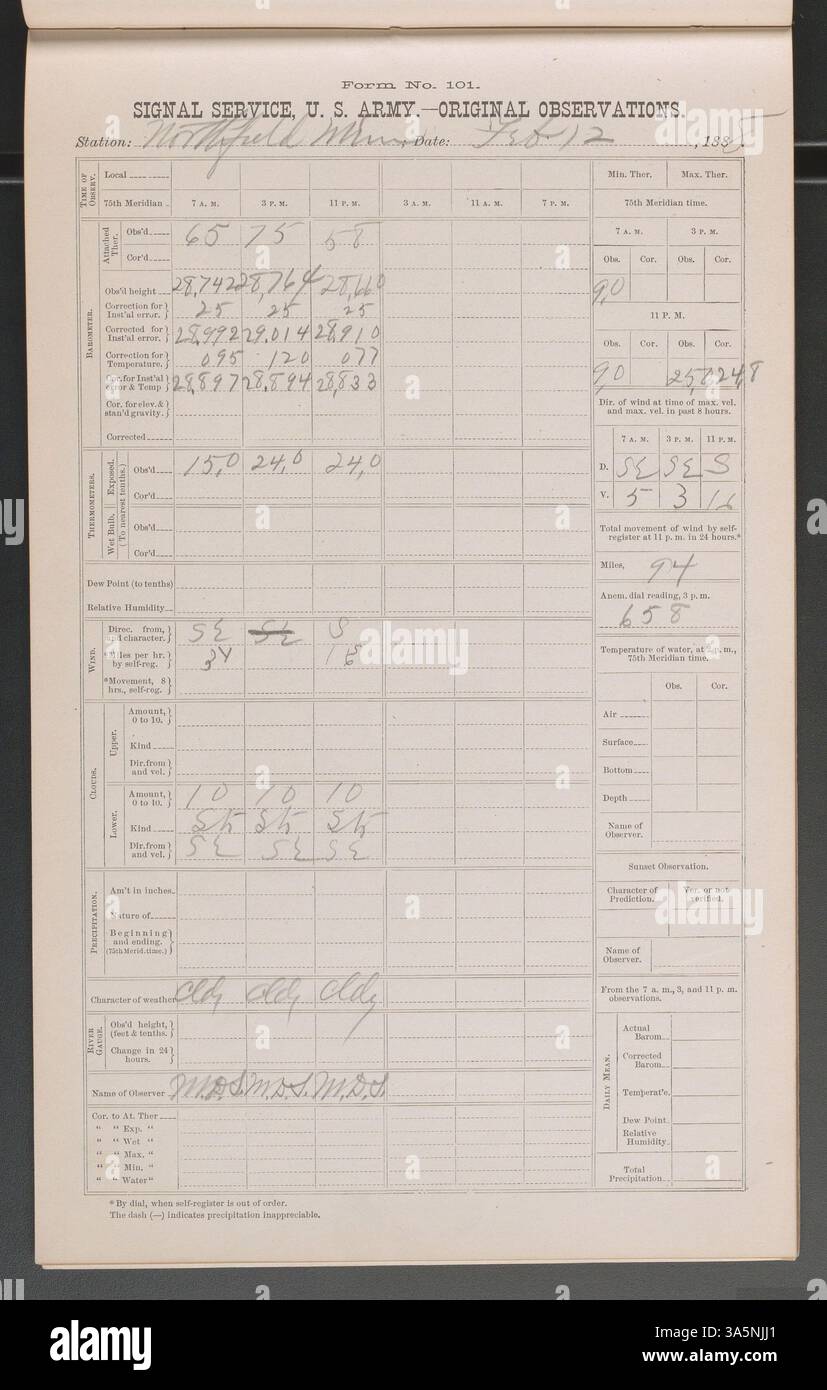 Form No. 101.
SIGNAL SERVICE, U. S. ARMY.—ORIGINAL OBSERVATIONS.
Station: Northfield Minn; Date: Feb 12, 1885.
TIME OF OBSERV.
Local
75th Meridian 7 A. M. 3 P. M. 11 P. M. 3 A. M. 11 A. M. 7 P. M.
BAROMETER.
Attached Ther.
Obs'd 65 75 58
Cor'd
Obs'd height 28,742 28,764 28,660
Correction for Inst'al error. 25 25 25
Corrected for Inst'al error. 28,992 29,014 28,910
Correction for Temperature. 095 120 077
Cor. for Inst'al error & Temp 28,897 28,894 28,833
Cor. for elev. & stan'd gravity.
Corrected
THERMOMETERS.
Exposed.
Wet Bulb.
(To nearest tenths.)
Obs'd 15,0 24,0 24,0
Cor'd
Obs'd
Cor'd
Dew Point (to tenths)
Relative Humidity
WIND.
Direc. from, and character. SE SE S
*Miles per hr. by self-reg.
*Movement, 8 hrs., self-reg.
CLOUDS.
Upper.
Amount, 0 to 10.
Kind
Dir. from and vel.
Lower.
Amount, 0 to 10. 10 10 10
Kind St St St
Dir. from and vel. SE SE SE
PRECIPITATION.
Am't in inches.
Nature of
Beginning and ending. (75th Merid. time.)
Character of weather Cldy Cldy Cldy
RIVER GAUGE.
Obs'd height, (feet & tenths.)
Change in 24 hours.
Name of Observer M.D.S. M.D.S. M.D.S.
Cor. to At. Ther
" " Exp. "
" " Wet "
" " Max. "
" " Min. "
" " Water "
* By dial, when self-register is out of order.
The dash (—) indicates precipitation inappreciable.
Min. Ther. Max. Ther.
75th Meridian time.
7 A. M. 3 P. M.
Obs. Cor. Obs. Cor.
9,0
11 P. M.
Obs. Cor. Obs. Cor.
9,0 24,8
Dir. of wind at time of max. vel. and max. vel. in past 8 hours.
7 A. M. 3 P. M. 11 P. M.
D. SE SE S
V. 5 3 16
Total movement of wind by self-register at 11 p. m. in 24 hours.*
Miles, 94
Anem. dial reading, 3 p. m.
658
Temperature of water, at 2 p. m., 75th Meridian time.
Obs. Cor.
Air
Surface
Bottom
Depth
Name of Observer.
Sunset Observation.
Character of Prediction. Ver. or not verified.
Name of Observer.
From the 7 a. m., 3, and 11 p. m. observations.
DAILY MEAN.
Actual Barom
Corrected Barom
Temperat'e.
Dew Point
Relative Humidity
Total Precipitation
alamy
a
alamy
Image ID: 3A5NJJ1
www.alamy.com